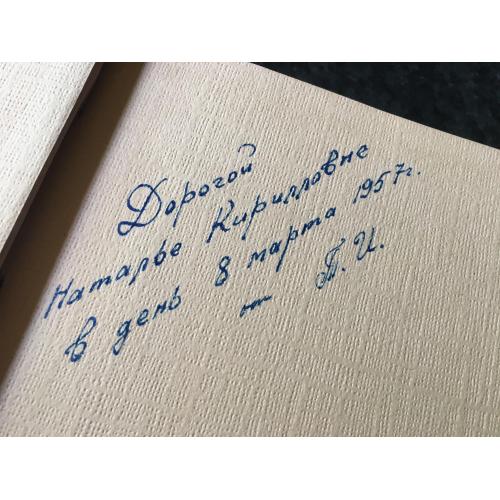 Дорогой
Наталье Кирилловне
в день 8 марта 1957г.
от П.И.